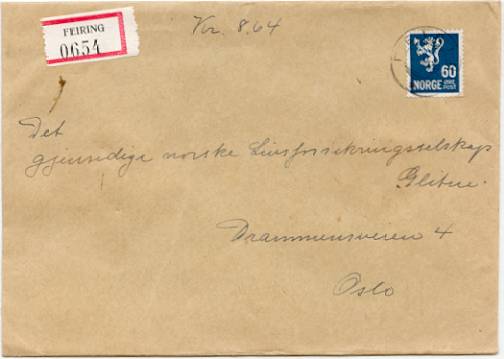 FEIRING
0654
Kr. 8.64
60
NORGE ØRE POST
Det
gjensidige norske Livsforsikringsselskap
Glitne.
Drammensveien 4
Oslo